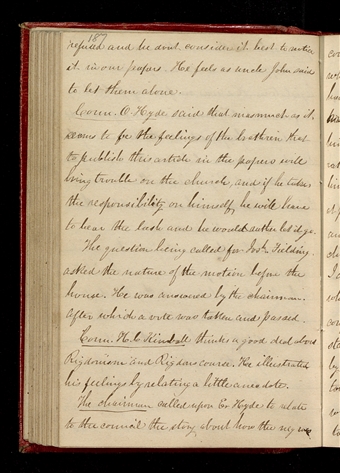 187
refused and he dont consider it best to notice
it in our papers. He feels as uncle John said
to let them alone.
Coun. O. Hyde said that inasmuch as it
seems to be the feelings of the brethren that
to publish this article in the papers will
bring trouble on the church, and if he takes
the responsibility on himself, he will have
to bear the lash and he would rather let it go.
The question being called for Jos. Fielding
asked the nature of the motion before the
house. He was answered by the chairman.
After which a vote was taken and passed.
Coun. H. C. Kimball thinks a good deal about
Rigdonism and Rigdons course. He illustrated
his feelings by relating a little anecdote.
The chairman called upon Er Hyde to relate
to the council the story about how the nigro